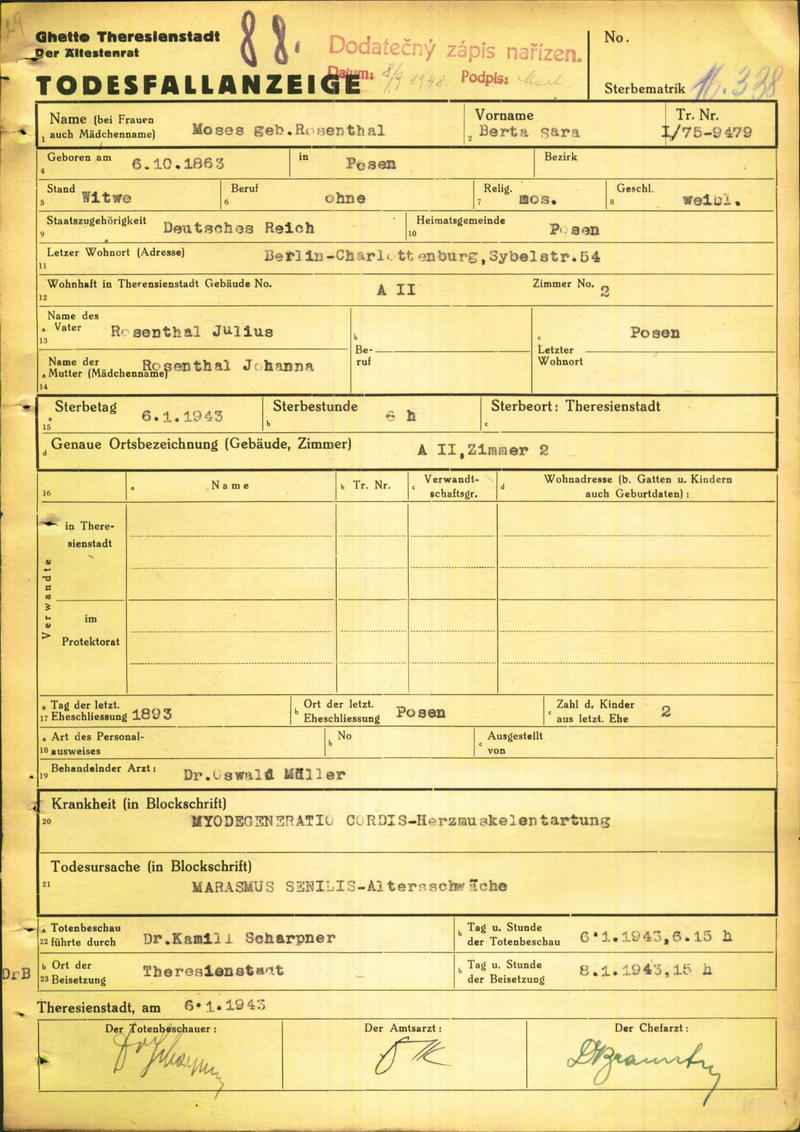 Ghetto Theresienstadt
Der Ältestenrat
88.
Dodatečný zápis nařízen.
Datum: 8/9 1948 Podpis:
No.
TODESFALLANZEIGE
Sterbematrik 16.338
Name (bei Frauen Moses geb.Rosenthal
1 auch Mädchenname)
Vorname
2 Berta Sara
Tr. Nr.
I/75-9479
Geboren am 6.10.1863
4
in Posen
Bezirk
Stand Witwe
5
Beruf ohne
6
Relig. mos.
7
Geschl. weibl.
8
Staatszugehörigkeit Deutsches Reich
9
Heimatsgemeinde Posen
10
Letzer Wohnort (Adresse) Berlin-Charlottenburg,Sybelstr.54
11
Wohnhaft in Therensienstadt Gebäude No. A II
12
Zimmer No. 2
Name des
a Vater Rosenthal Julius
13
b
c Posen
Be-
ruf
Letzter
Wohnort
Name der Rosenthal Johanna
a Mutter (Mädchenname)
14
a Sterbetag 6.1.1943
15
Sterbestunde 6 h
b
Sterbeort: Theresienstadt
c
d Genaue Ortsbezeichnung (Gebäude, Zimmer) A II,Zimmer 2
16
a Name
b Tr. Nr.
c Verwandt-
schaftsgr.
d Wohnadresse (b. Gatten u. Kindern
auch Geburtdaten) :
Verwandte
in There-
sienstadt
im
Protektorat
a Tag der letzt.
17 Eheschliessung 1893
b Ort der letzt.
Eheschliessung Posen
c Zahl d. Kinder
aus letzt. Ehe 2
a Art des Personal-
18 ausweises
b No
c Ausgestellt
von
19 Behandelnder Arzt: Dr.Oswald Müller
Krankheit (in Blockschrift)
20 MYODEGENERATIO CORDIS-Herzmuskelentartung
Todesursache (in Blockschrift)
21 MARASMUS SENILIS-Altersschwäche
a Totenbeschau
22 führte durch Dr.Kamill Scharpner
b Tag u. Stunde
der Totenbeschau 6.1.1943,6.15 h
DrB
b Ort der
23 Beisetzung Theresienstadt
b Tag u. Stunde
der Beisetzung 8.1.1943,15 h
Theresienstadt, am 6.1.1943
Der Totenbeschauer :
Der Amtsarzt :
Der Chefarzt :